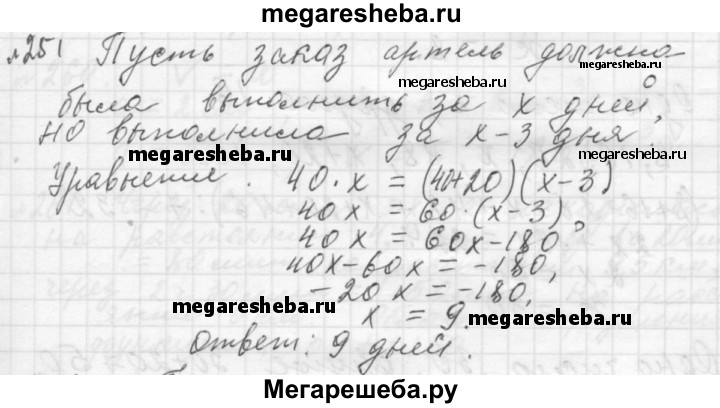 megaresheba.ru
№251 Пусть заказ артель должна
megaresheba.ru
megaresheba.ru
была выполнить за x дней,
но выполнила за x-3 дня.
megaresheba.ru
megaresheba.ru
Уравнение: 40·x = (40+20)(x-3)
40x = 60·(x-3),
40x = 60x-180,
40x-60x = -180,
-20x = -180,
megaresheba.ru
megaresheba.ru
x = 9.
Ответ: 9 дней.
Мегарешеба.ру